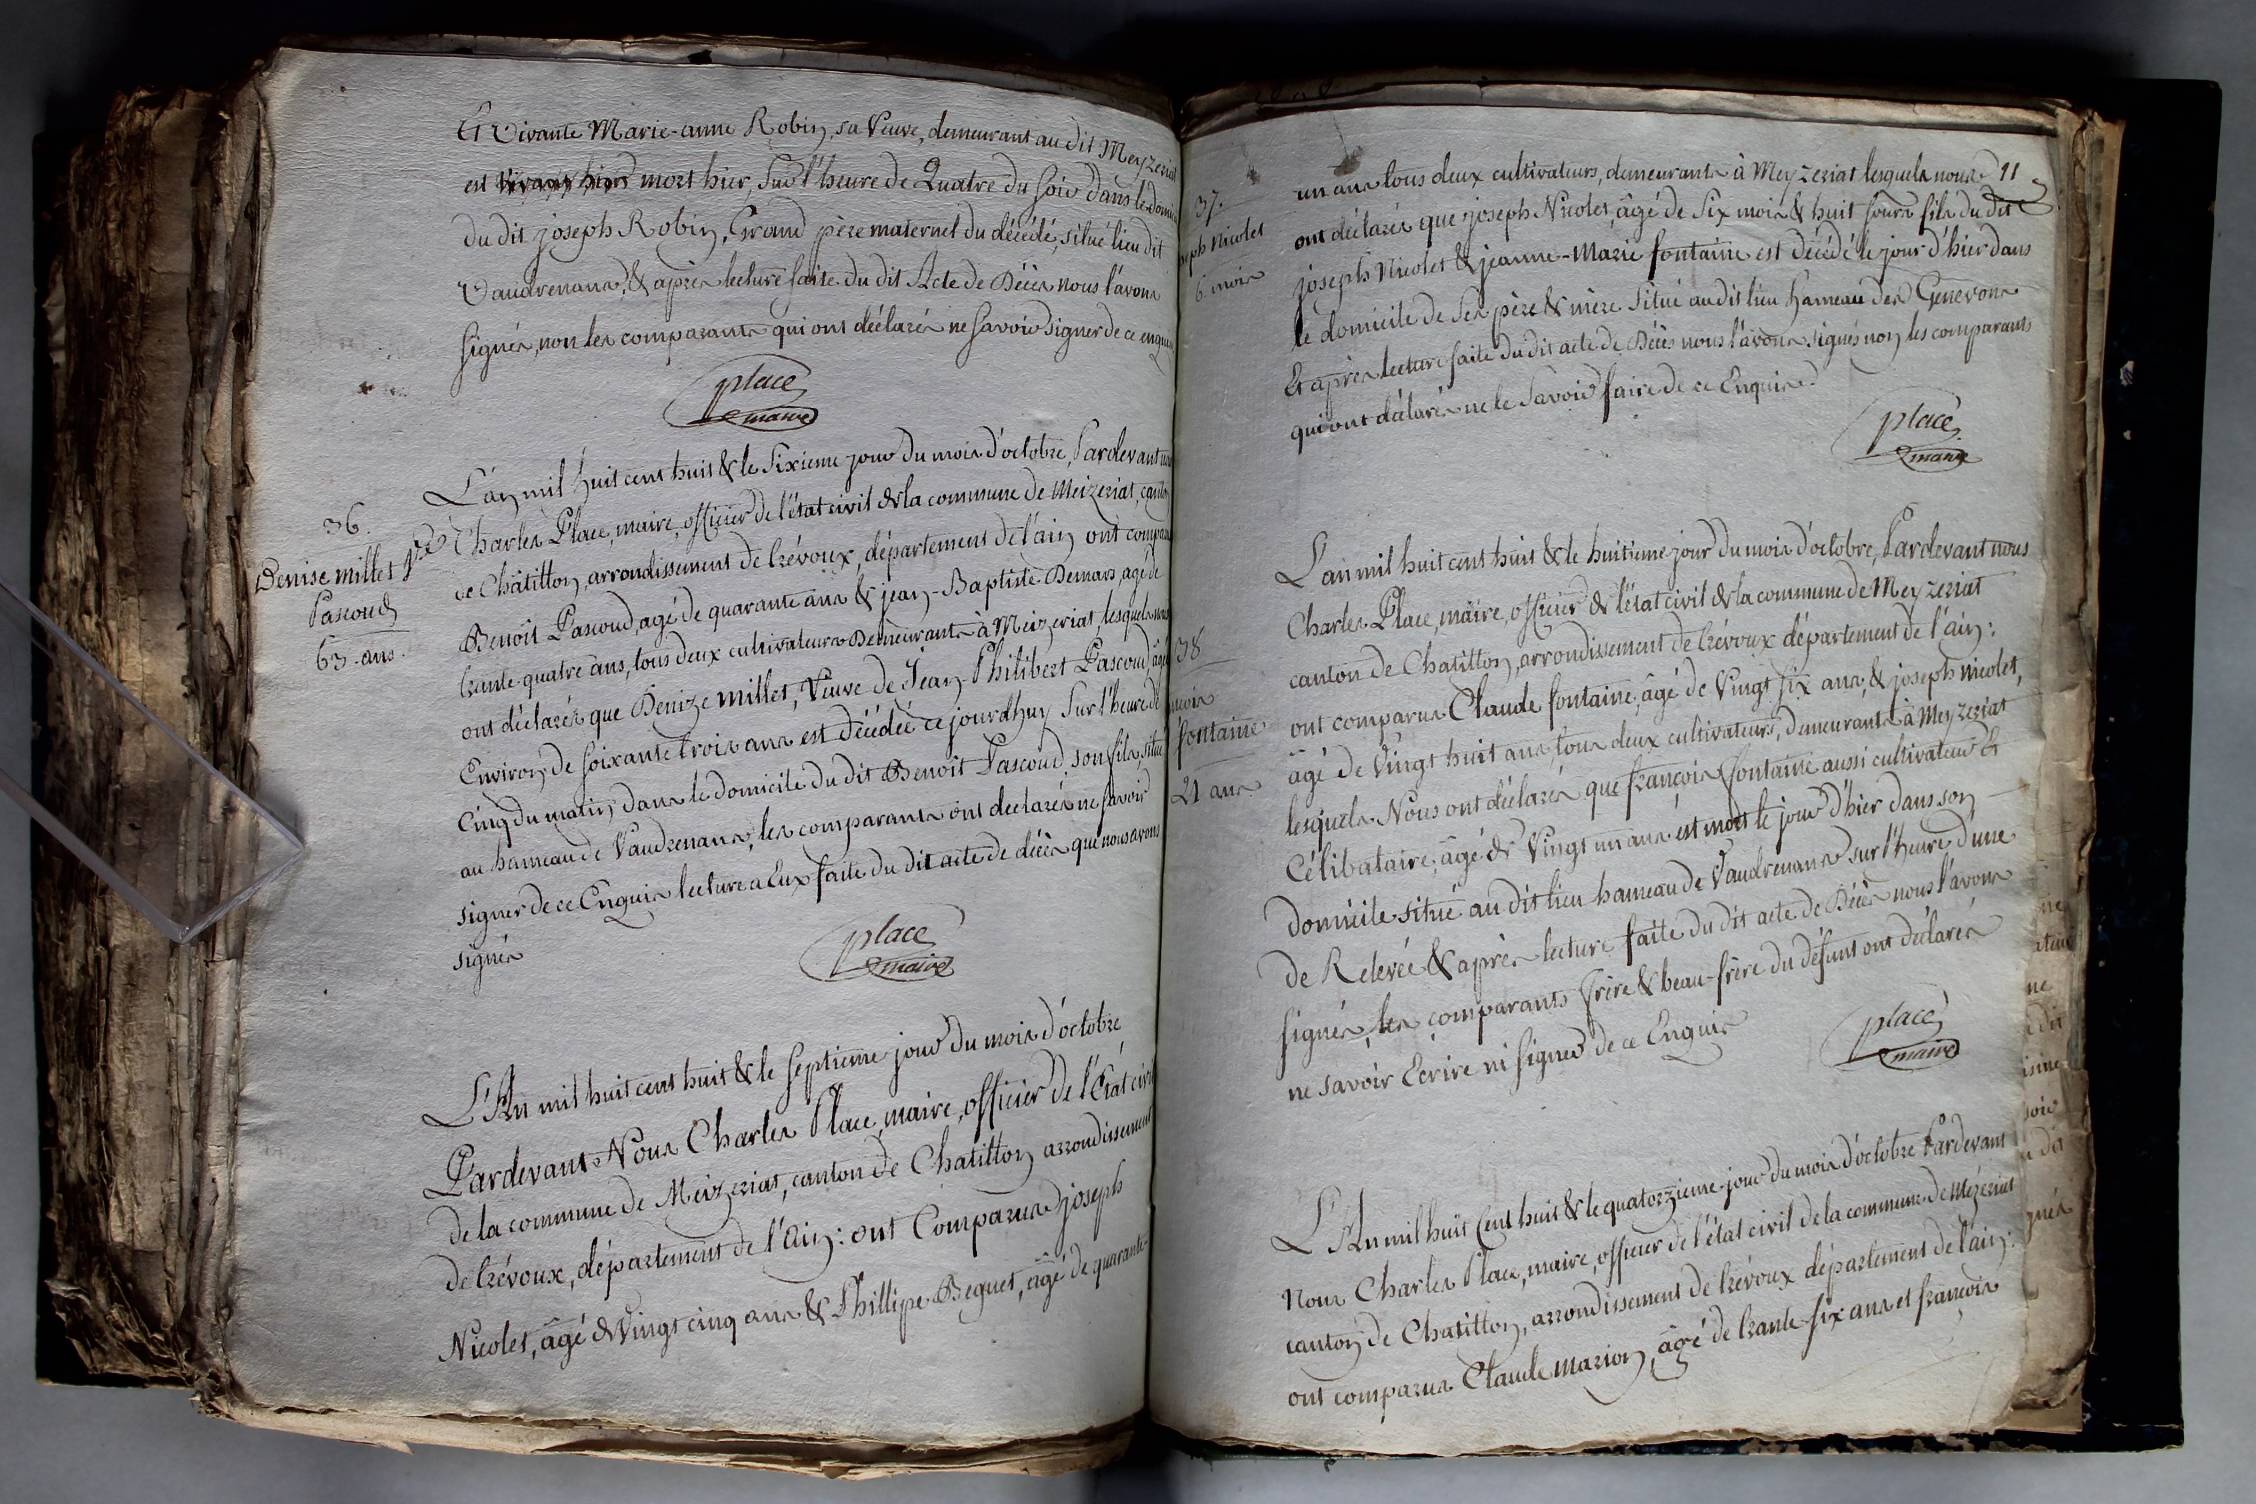 Et vivante Marie-anne Robin, sa Veuve, demeurant au dit Meyzeriat
est mort hier, sur l'heure de Quatre du soir dans le domi
du dit joseph Robin, Grand père maternel du décédé, situé lieu dit
Vaudrenans, & après lecture faite du dit Acte de Décès nous l'avons
signés, non les comparants qui ont déclarés ne savoir signer de ce enquis
place
maire
36.
Denise millet Vve
Pascoud
63. ans.
L'an mil huit cent huit & le sixieme jour du mois d'octobre, Pardevant nous
Charles Place, maire, officier de l'état civil de la commune de Meizeriat, canton
de Châtillon, arrondissement de trévoux, département de l'ain ont compar
Benoît Pascoud, agé de quarante ans & jean-Baptiste Demars, agé de
trante-quatre ans, tous deux cultivateurs Demeurants à Meizeriat lesquels nous
ont déclarés que Denize millet, Veuve de Jean Philibert Pascoud, âgée
Environ de soixante trois ans est Décédée ce jourdhuy sur l'heure de
Cinq du matin dans le domicile du dit Benoit Pascoud, son fils, situé
au hameau de Vaudrenans, les comparants ont declarés ne savoir
signer de ce Enquis lecture a Eux faite du dit acte de décès que nous avons
signés
place
maire
L'An mil huit cent huit & le septieme jour du mois d'octobre
Pardevant Nous Charles Place, maire, officier de l'Etat civil
de la commune de Meizeriat, canton de Chatillon arrondissement
de trévoux, département de l'Ain: ont Comparus joseph
Nicolet, âgé de vingt cinq ans & Phillipe Beguet, âgé de quarante-
11
37.
seph Nicolet
6. mois
un ans tous deux cultivateurs, demeurants à Meyzeriat lesquels nous
ont déclarés que joseph Nicolet, âgé de six mois & huit jours fils du dit
joseph Nicolet & jeanne-Marie fontaine est décédé le jour d'hier dans
le domicile de ses père & mère situé au dit lieu hameau des Genevons
Et après lecture faite du dit acte de Décès nous l'avons signés non les comparants
qui ont déclarés ne le savoir faire de ce Enquis.
place
maire
38
ncois
fontaine
21 ans
L'an mil huit cent huit & le huitieme jour du mois d'octobre, Pardevant nous
Charles Place, maire, officier de l'état civil de la commune de Meyzeriat
canton de Chatillon, arrondissement de trévoux département de l'ain:
ont comparus Claude fontaine, âgé de Vingt six ans, & joseph nicolet,
âgé de Vingt huit ans, tous deux cultivateurs, demeurants à Meyzeriat
lesquels Nous ont déclarés que françois fontaine aussi cultivateur Et
Célibataire, âgé de Vingt un ans est mort le jour d'hier dans son
domicile situé au dit lieu hameau de Vaudrenans sur l'heure d'une
de Relevée & après lecture faite du dit acte de Décès nous l'avons
signés, les comparants frère & beau-frère du défunt ont déclarés
ne savoir Ecrire ni signer de ce Enquis
place
maire
L'An mil huit Cent huit & le quatorzieme jour du mois d'octobre Pardevant
nous Charles Place, maire, officier de l'état civil de la commune de Mézériat
canton de Chatillon, arrondissement de trévoux département de l'ain:
ont comparus Claude marion, âgé de trante six ans et françois